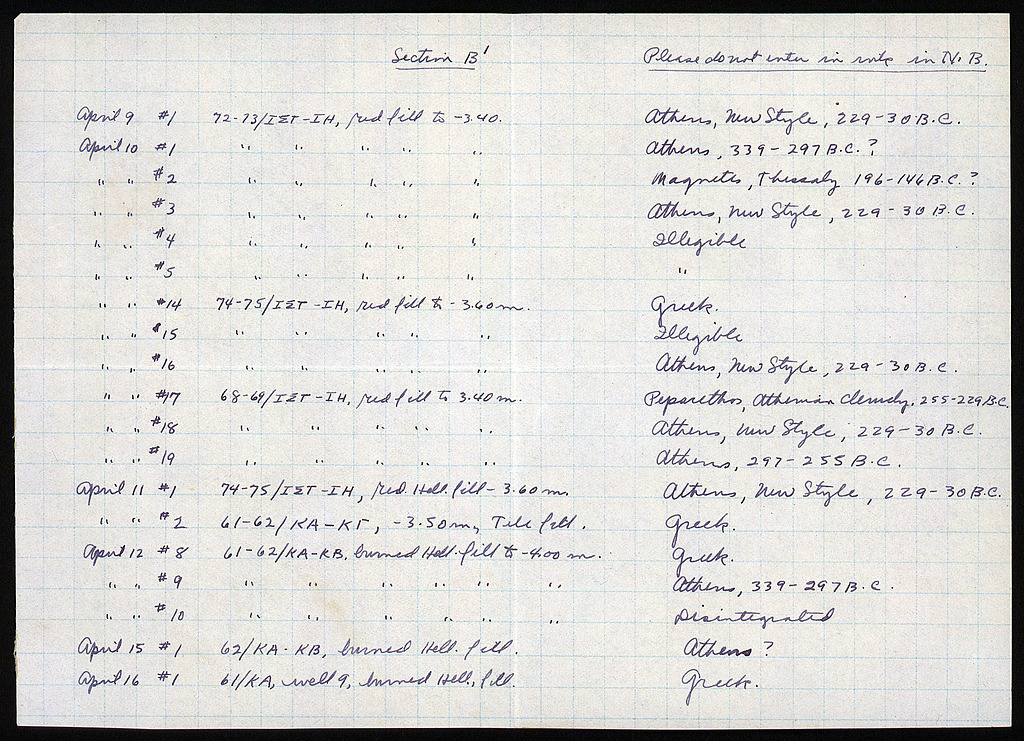 Section B' Please do not enter in ink in N.B.
April 9 #1 72-73/ΙΣΤ-ΙΗ, red fill to -3.40. Athens, New Style, 229-30 B.C.
April 10 #1 " " " " " Athens, 339-297 B.C.?
" " #2 " " " " " Magnetes, Thessaly 196-146 B.C.?
" " #3 " " " " " Athens, New Style, 229-30 B.C.
" " #4 " " " " " Illegible
" " #5 " " " " " "
" " #14 74-75/ΙΣΤ-ΙΗ, red fill to -3.60 m. Greek.
" " #15 " " " " " Illegible
" " #16 " " " " " Athens, New Style, 229-30 B.C.
" " #17 68-69/ΙΣΤ-ΙΗ, red fill to 3.40 m. Peparethos, Athenian Cleruchy, 255-229 B.C.
" " #18 " " " " " Athens, New Style, 229-30 B.C.
" " #19 " " " " " Athens, 297-255 B.C.
April 11 #1 74-75/ΙΣΤ-ΙΗ, red Hell. fill - 3.60 m. Athens, New Style, 229-30 B.C.
" " #2 61-62/ΚΑ-ΚΓ, -3.50 m, Tile fill. Greek.
April 12 #8 61-62/ΚΑ-ΚΒ, burned Hell. fill to -4.00 m. Greek.
" " #9 " " " " " " Athens, 339-297 B.C.
" " #10 " " " " " " Disintegrated
April 15 #1 62/ΚΑ-ΚΒ, burned Hell. fill. Athens?
April 16 #1 61/ΚΑ, well 9, burned Hell, fill. Greek.